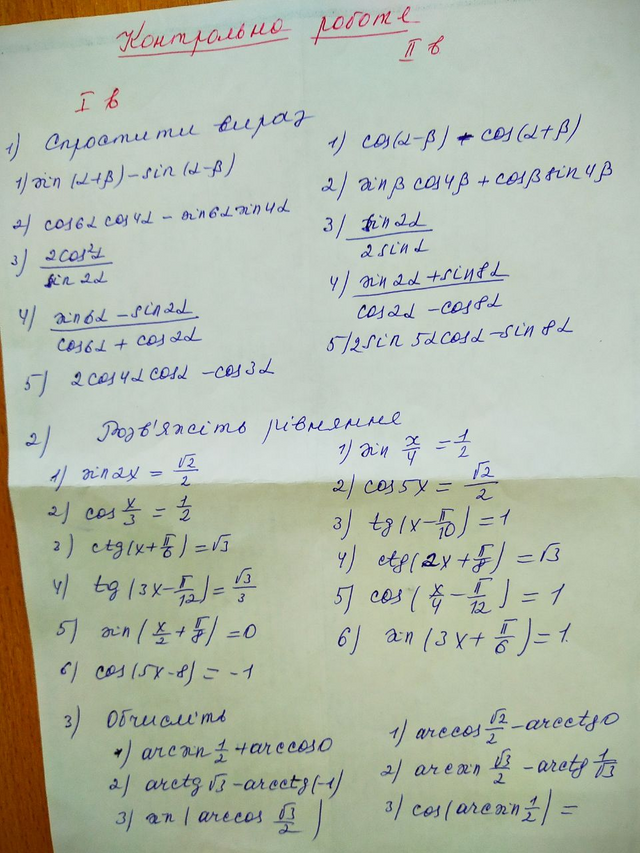 Контрольна робота
I в
II в
1) Спростити вираз
1) sin(α+β) – sin(α–β)
2) cos6α cos4α – sin6α sin4α
3) 2cos²α / sin2α
4) sin6α – sin2α / cos6α + cos2α
5) 2cos4α cosα – cos3α
1) cos(α–β) – cos(α+β)
2) sinβ cos4β + cosβ sin4β
3) sin2α / 2sinα
4) sin2α + sin8α / cos2α – cos8α
5) 2sin5α cosα – sin8α
2) Розв'яжіть рівняння
1) sin2x = √2/2
2) cos x/3 = 1/2
3) ctg(x+π/6) = √3
4) tg(3x–π/12) = √3/3
5) sin(x/2 + π/8) = 0
6) cos(5x–8) = –1
1) sin x/4 = 1/2
2) cos5x = √2/2
3) tg(x–π/10) = 1
4) ctg(2x+π/8) = √3
5) cos(x/4 – π/12) = 1
6) sin(3x+π/6) = 1
3) Обчисліть
1) arcsin 1/2 + arccos0
2) arctg√3 – arcctg(–1)
3) sin(arccos √3/2)
1) arccos √2/2 – arcctg0
2) arcsin √3/2 – arctg 1/√3
3) cos(arcsin 1/2) =